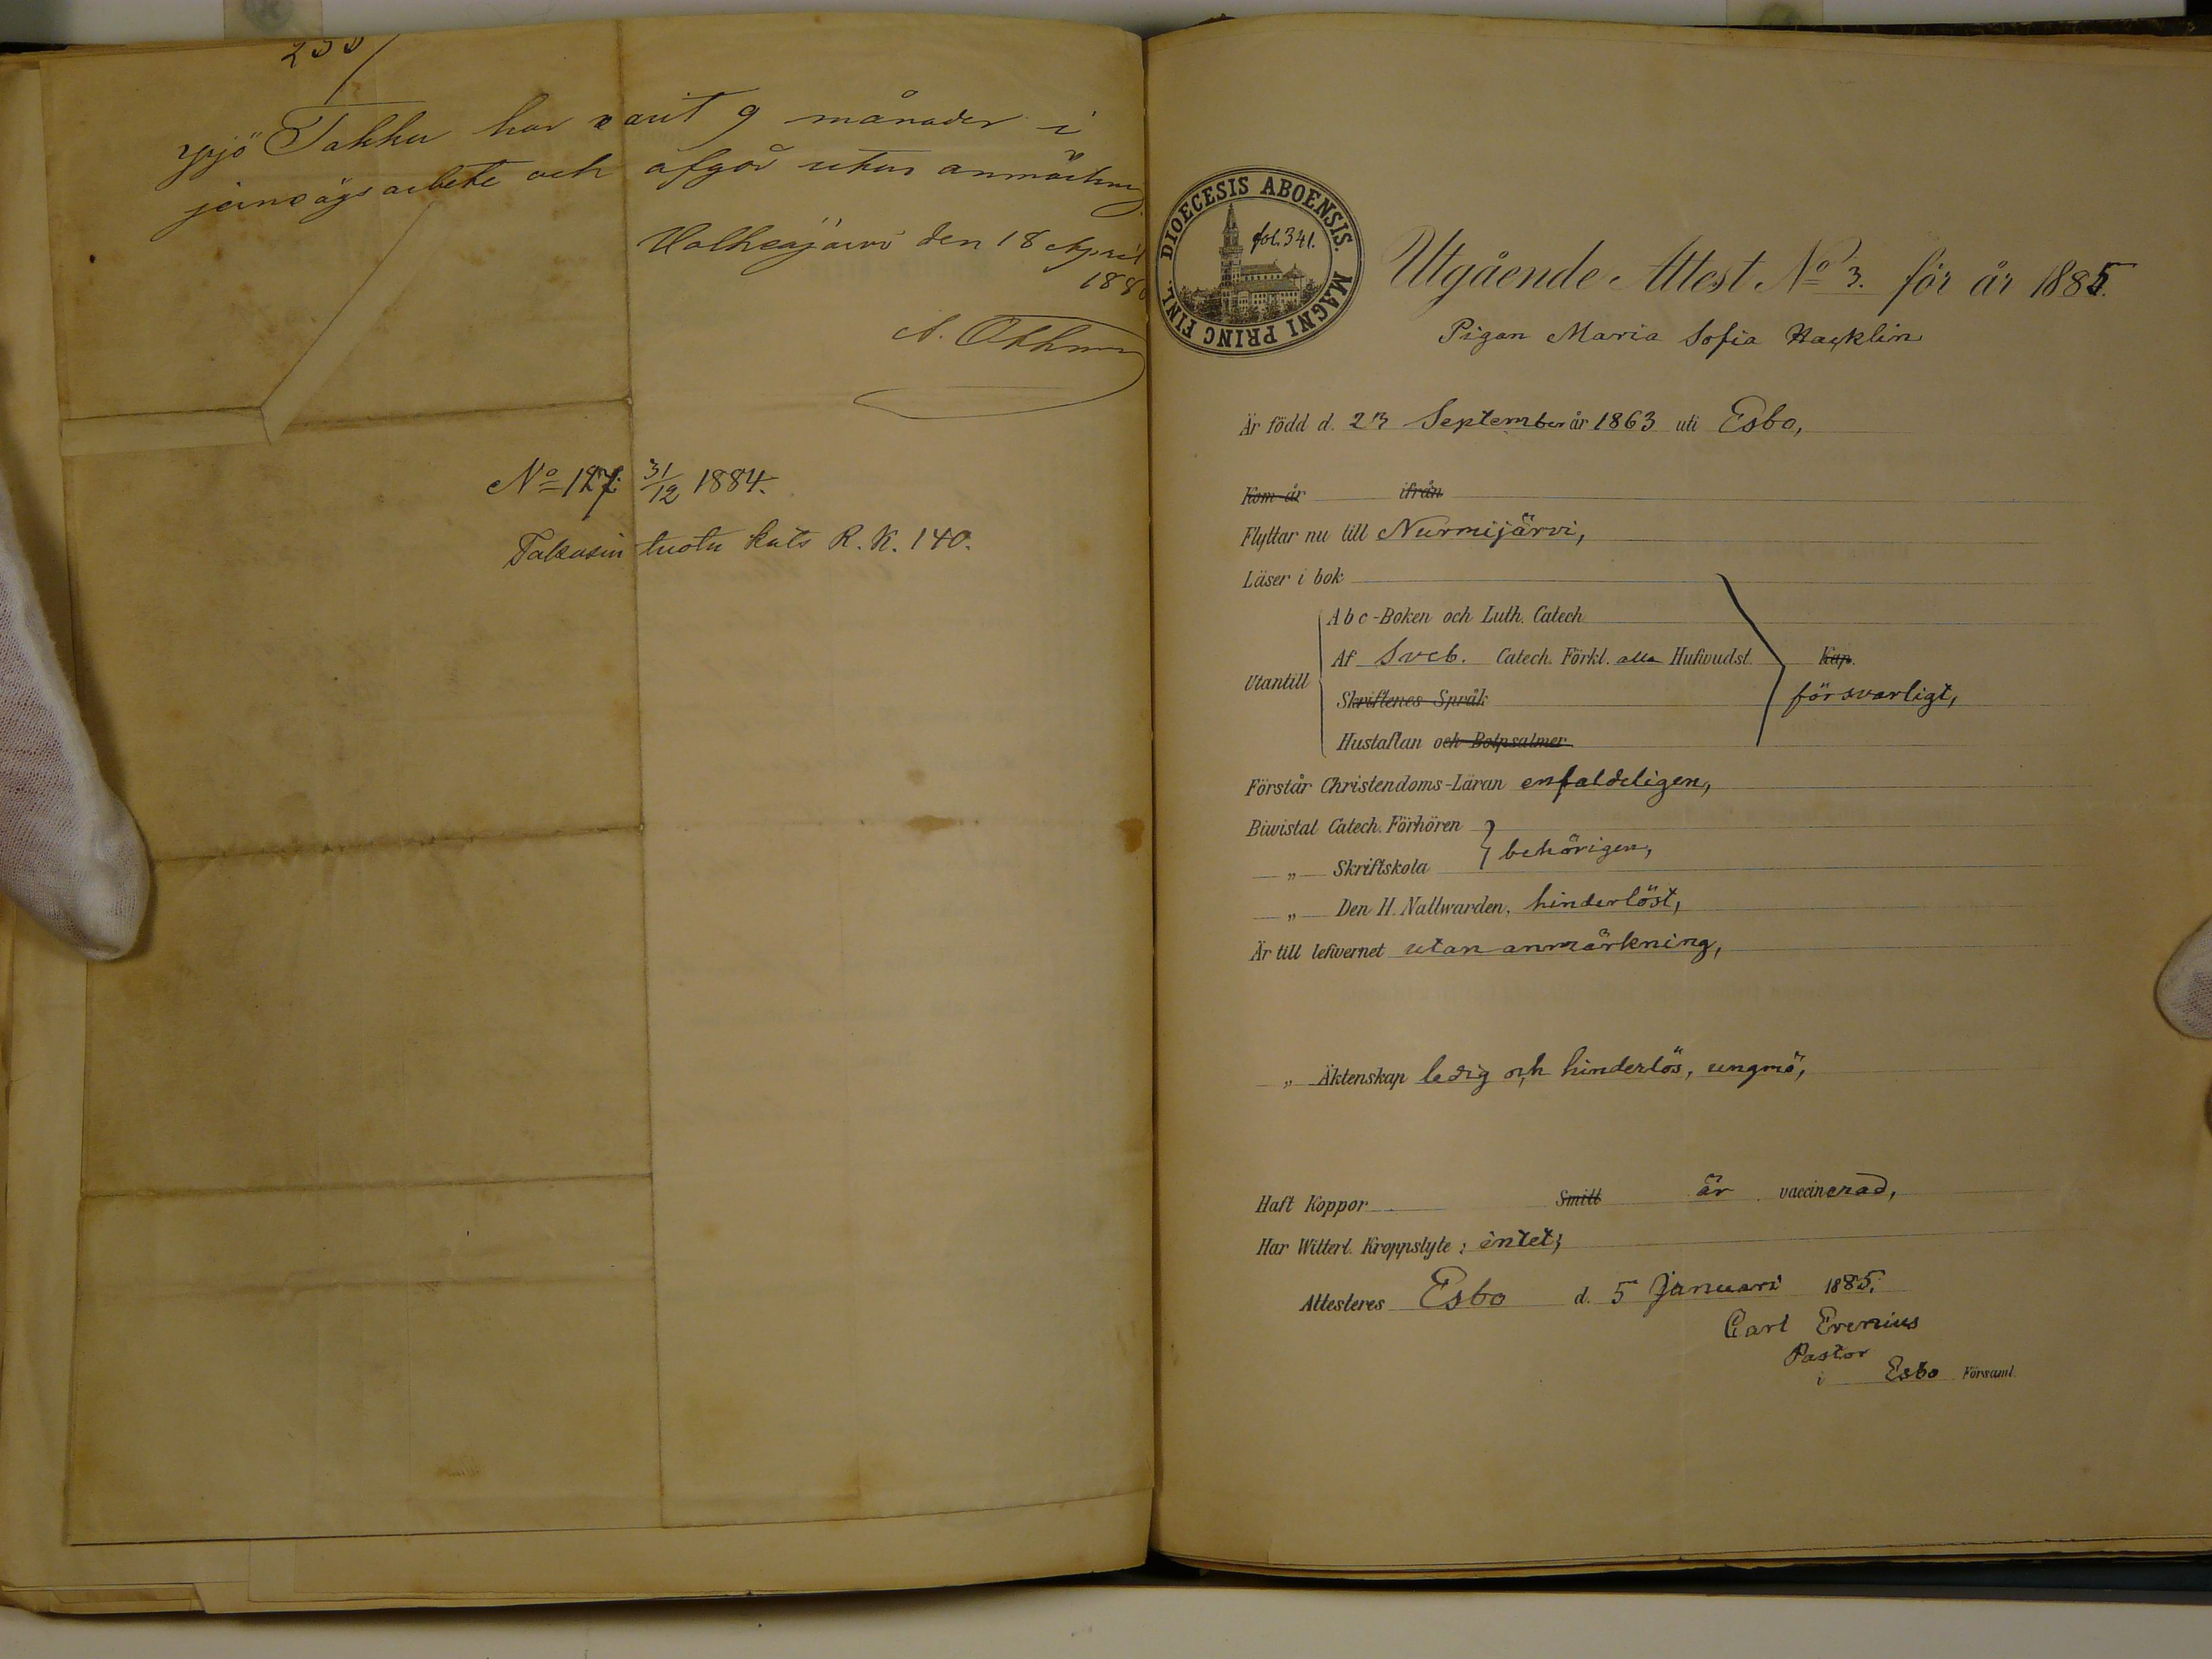 Yrjö Takku har varit 9 månader i
jernvägsarbete och afgår utan anmärkn.
Valkeajärvi den 18 April
188
A.
No 127 31/12 1884.
Takasin tuotu kats R. K. 140.
DIOECESIS ABOENSIS. MAGNI PRINC FINL.
fol. 341.
Utgående Attest No 3. för år 1885.
Pigan Maria Sofia Hacklin
Är född d. 23 September år 1863 uti Esbo,
Kom år ifrån
Flyttar nu till Nurmijärvi,
Läser i bok
Abc-Boken och Luth. Catech
Af Sveb. Catech. Förkl. alla Hufvudst. Kap.
Utantill
Skriftenes Språk försvarligt,
Hustaflan och Botpsalmer
Förstår Christendoms-Läran enfaldeligen,
Biwistat Catech. Förhören
„ Skriftskola behörigen,
„ Den H. Nattwarden, hinderlöst,
Är till lefwernet utan anmärkning,
„ Äktenskap ledig och hinderlös, ungmö,
Haft Koppor Smitt är vaccinerad,
Har Witterl. Kroppslyte: intet;
Attesteres Esbo d. 5 Januari 1885.
Carl Evenius
Pastor
i Esbo Församl.